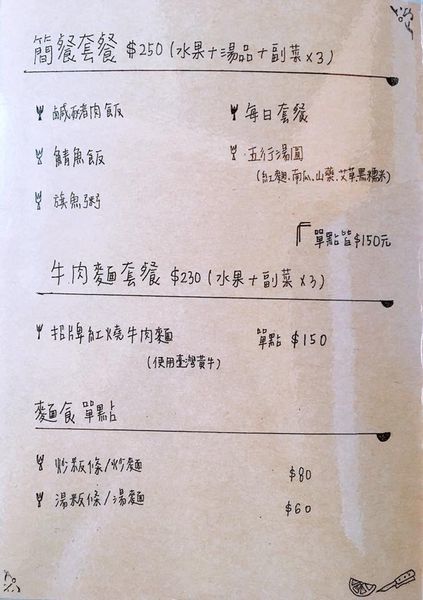 簡餐套餐 $250 (水果+湯品+副菜x3)
鹹豬肉飯
每日套餐
鯖魚飯
五行湯圓
(紅麴、南瓜、山藥、艾草、黑糯米)
旗魚粥
單點皆$150元
牛肉麵套餐 $230 (水果+副菜x3)
招牌紅燒牛肉麵 單點 $150
(使用臺灣黃牛)
麵食單點
炒粄條/炒麵 $80
湯粄條/湯麵 $60